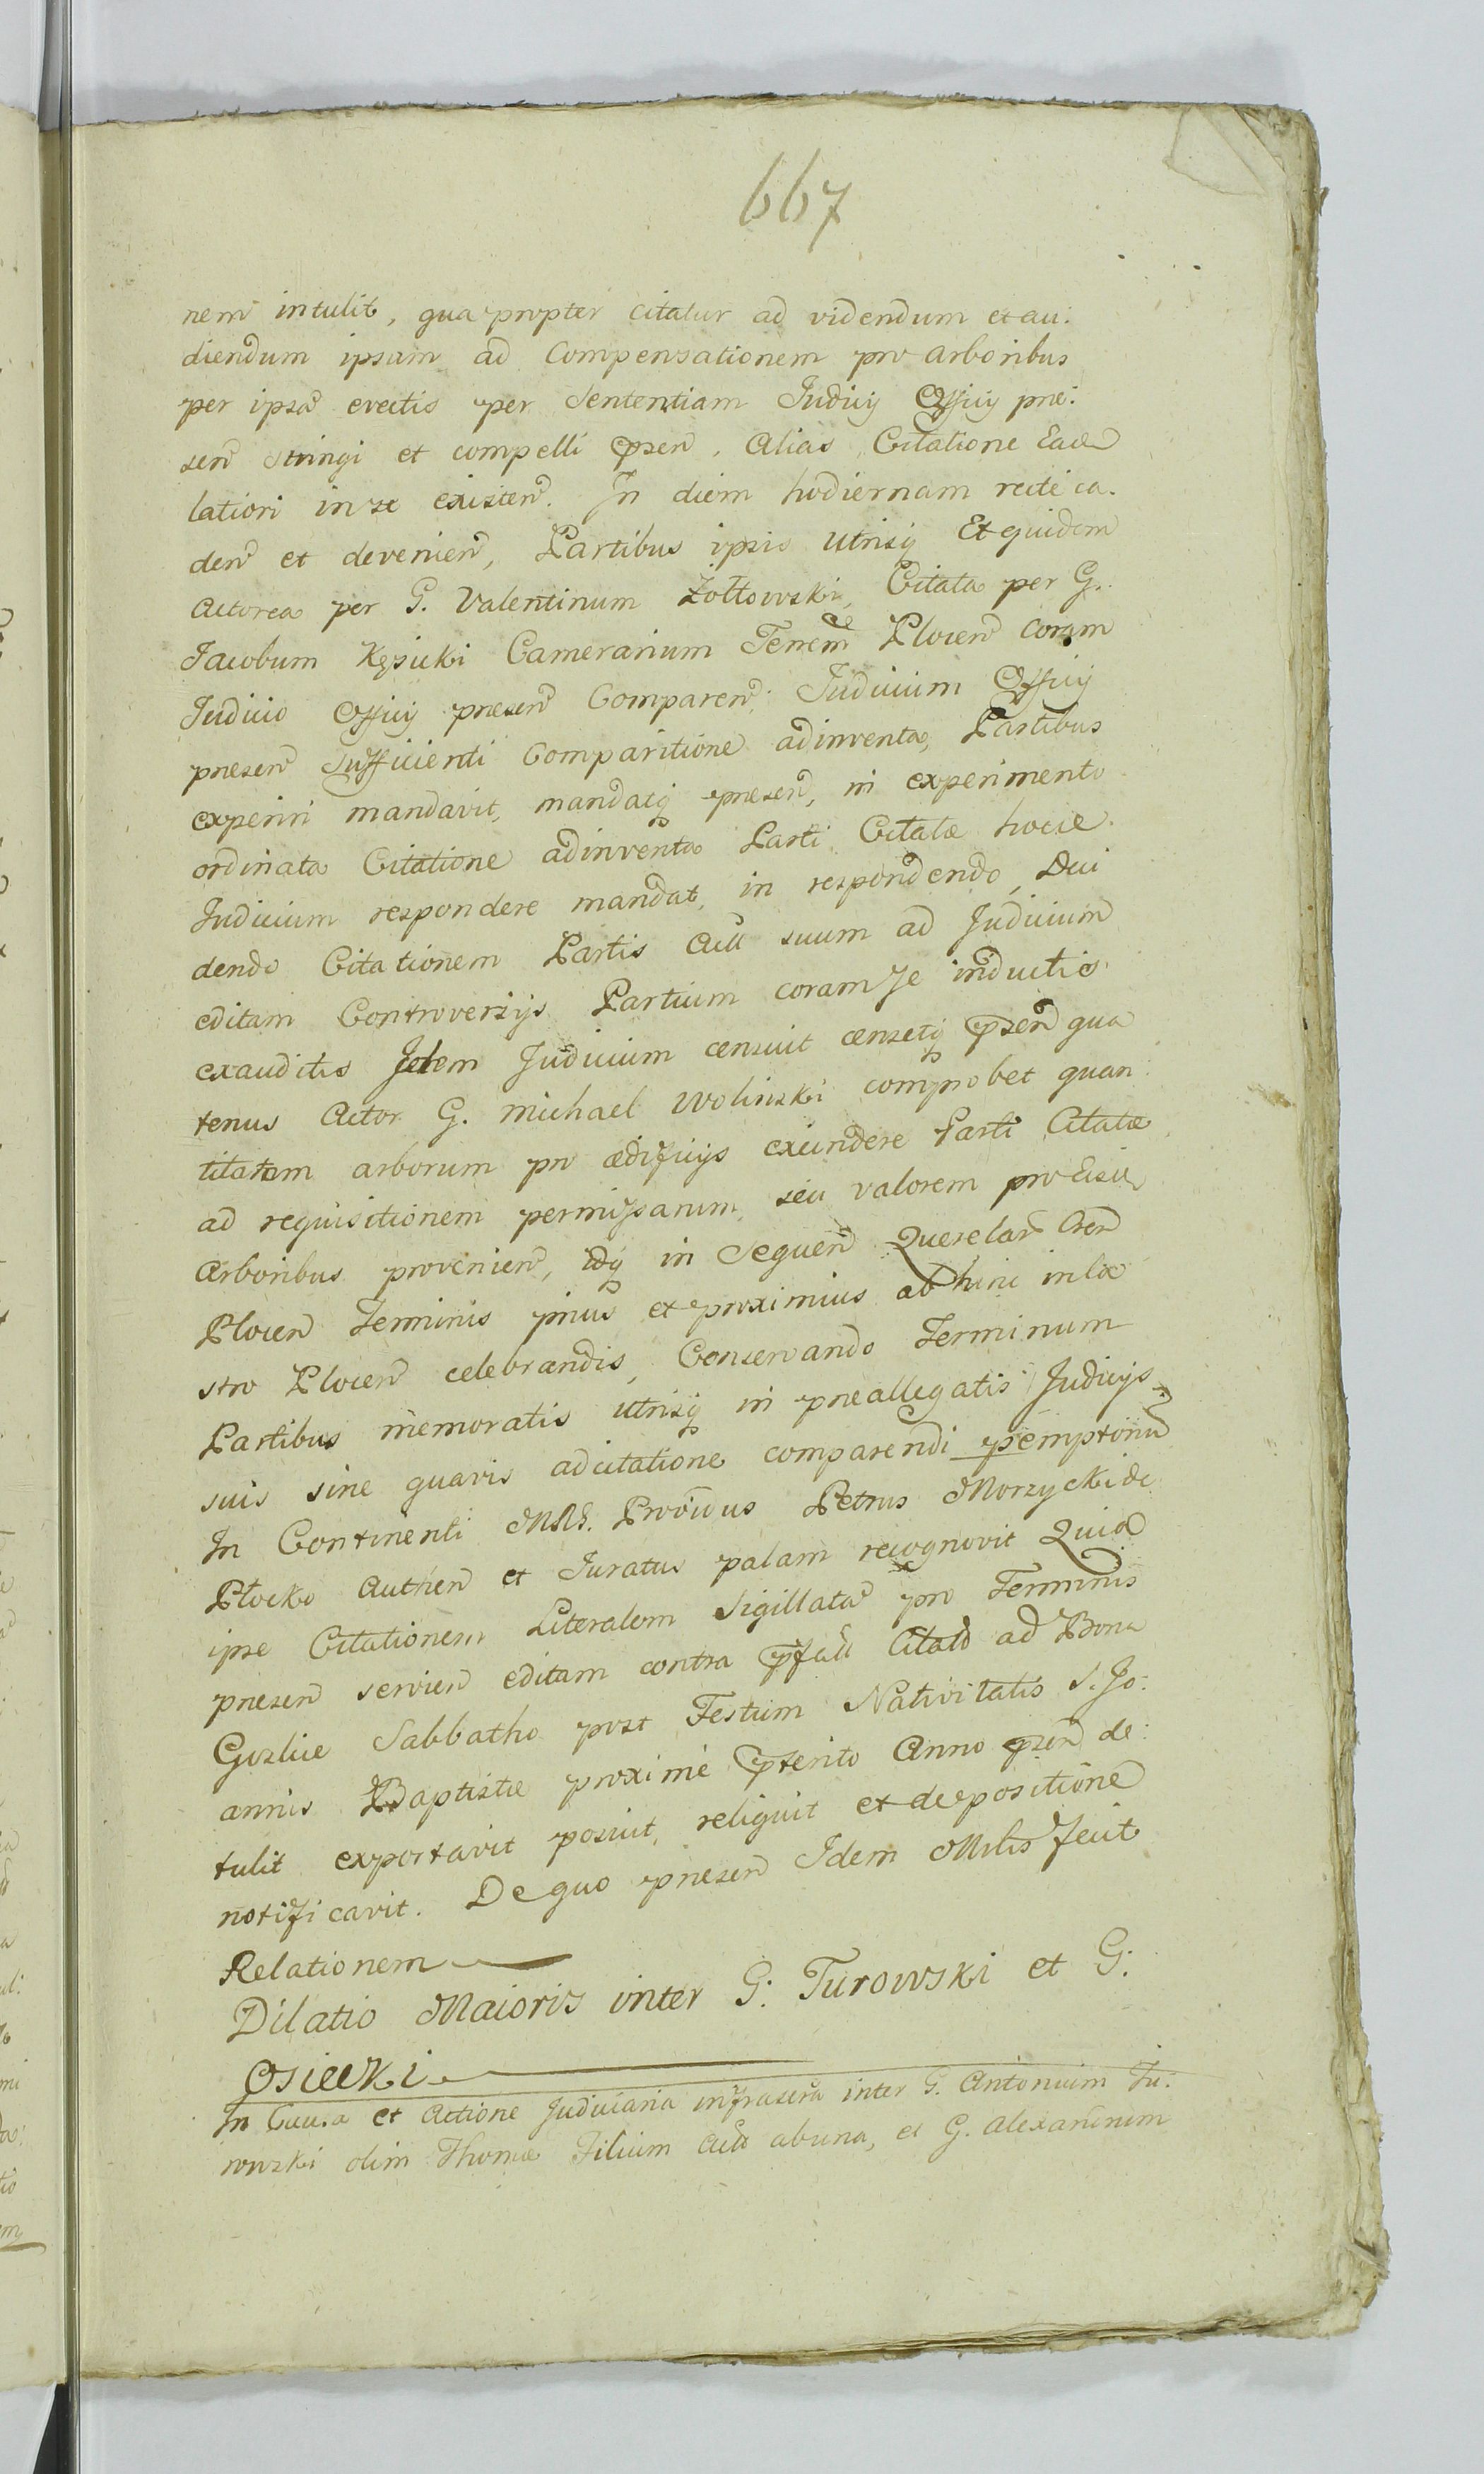 667
nem intulit, qua propter citatur ad videndum et au:
diendum ipsam ad Compensationem pro arboribus
per ipsā evectis per Sententiam Judicij Officij prae:
sen stringi et compelli psen. Alias Citatione Eadē
latiori in se existen. In diem hodiernam recte ca.
den et devenien, Partibus ipsis utrisq Et quidem
Actorea per G. Valentinum Żołtowski, Citata per G.
Jacobum Kęsicki Camerarium Terrem Plocen coram
Judicio Officij praesen Comparen. Judicium Officij
praesen Sufficienti Comparitione adinventa, Partibus
experiri mandavit, mandatq praesen, in experimento
ordinata Citatione adinventa Parti Citatæ hocce
Judicium respondere mandat, in respondendo, Dui
dendo Citationem Partis Act suum ad Judicium
editam Controversijs Partium coram se inductis
exauditis Idem Judicium censuit censetq psen qua
tenus Actor G. Michael Wolinski comprobet quan
titatem arborum pro ædificijs exundere Parti Citatæ
ad requisitionem permissarum, seu valorem pro Eisdē
Arboribus provenien, idq in Sequen Querelar Cren
Plocen Terminis prius et proximius ab hinc in Ca
stro Plocen celebrandis, Conservando Terminum
Partibus memoratis utrisq in praeallegatis Judicijs
suis sine quavis adcitatione comparendi pemptoriū
In Continenti Mnls. Providus Petrus Morzycki de
Płocko Authen et Juratus palam recognovit Quia
ipse Citationem Literalem Sigillatā pro Terminis
praesen servien editam contra pfatā Citatā ad Bona
Goslice Sabbatho post Festum Nativitatis S. Jo:
annis Baptistæ proxime pterito Anno psen de:
tulit exportavit posuit, reliquit et depositione
notificavit. De quo praesen Idem Mnlis fecit
Relationem
Dilatio Maioris inter G: Turowski et G:
Osiecki
In Causa et Actione Judiciaria infrascra inter G. Antonium Tu:
rowski olim Thomæ Filium Act ab una, et G. Alexandrum